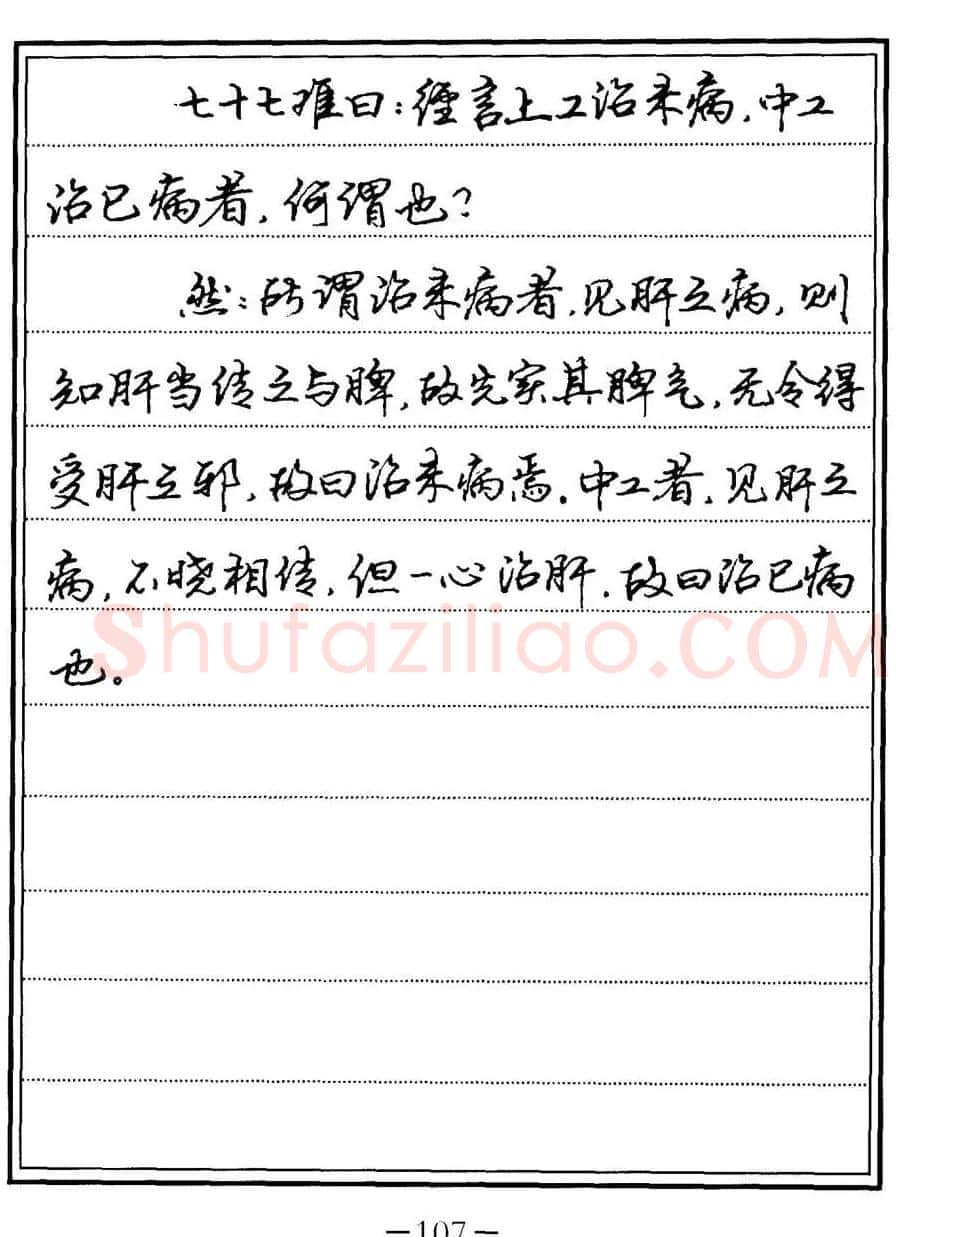 七十七难曰：经言上工治未病，中工
治已病者，何谓也？
然：所谓治未病者，见肝之病，则
知肝当传之与脾，故先实其脾气，无令得
受肝之邪，故曰治未病焉。中工者，见肝之
病，不晓相传，但一心治肝，故曰治已病
也。
Shufaziliao.COM
—107—